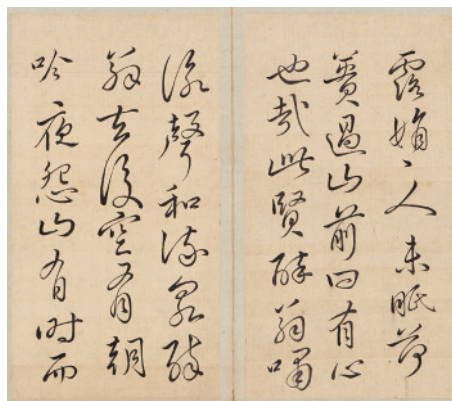 露娟〻人未眠荷
蕢過山前曰有心
也哉此賢醉翁嘯
詠聲和流泉醉
翁去後空有朝
吟夜怨山有時而